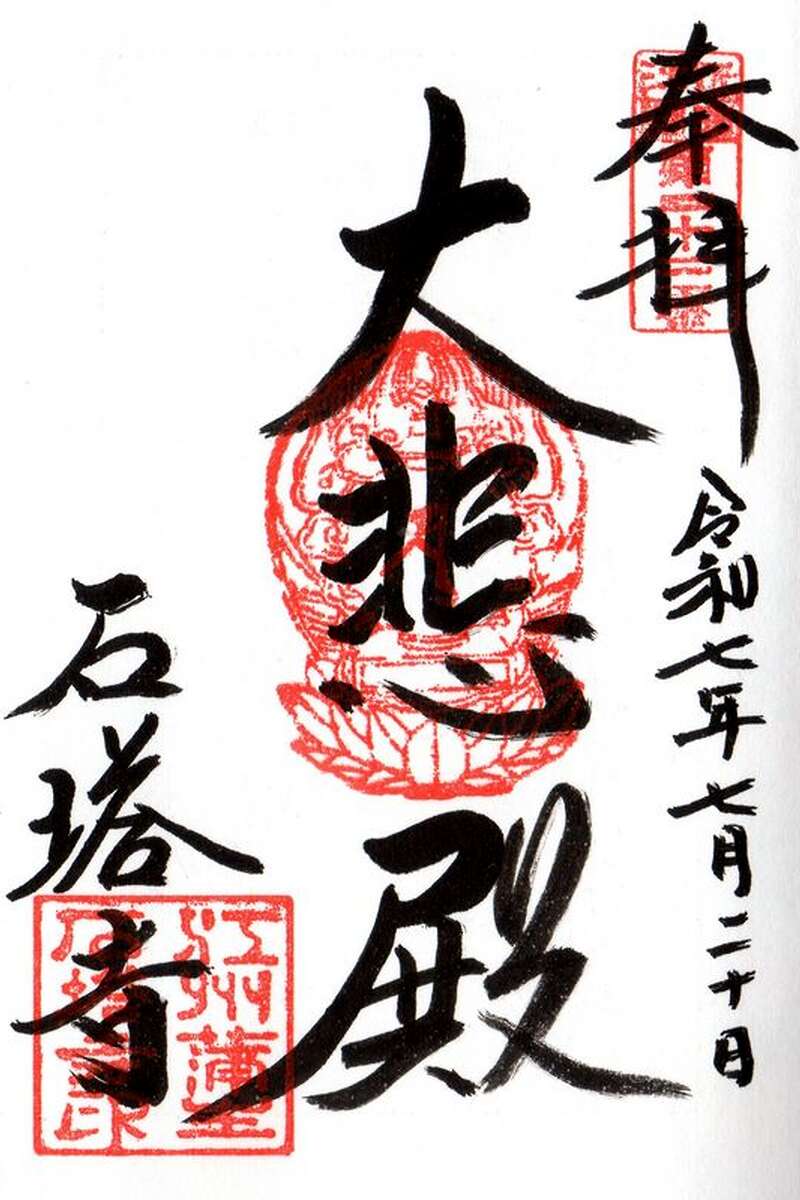 奉拝
令和七年七月二十日
大悲殿
石塔寺
江州蒲生
石塔寺印